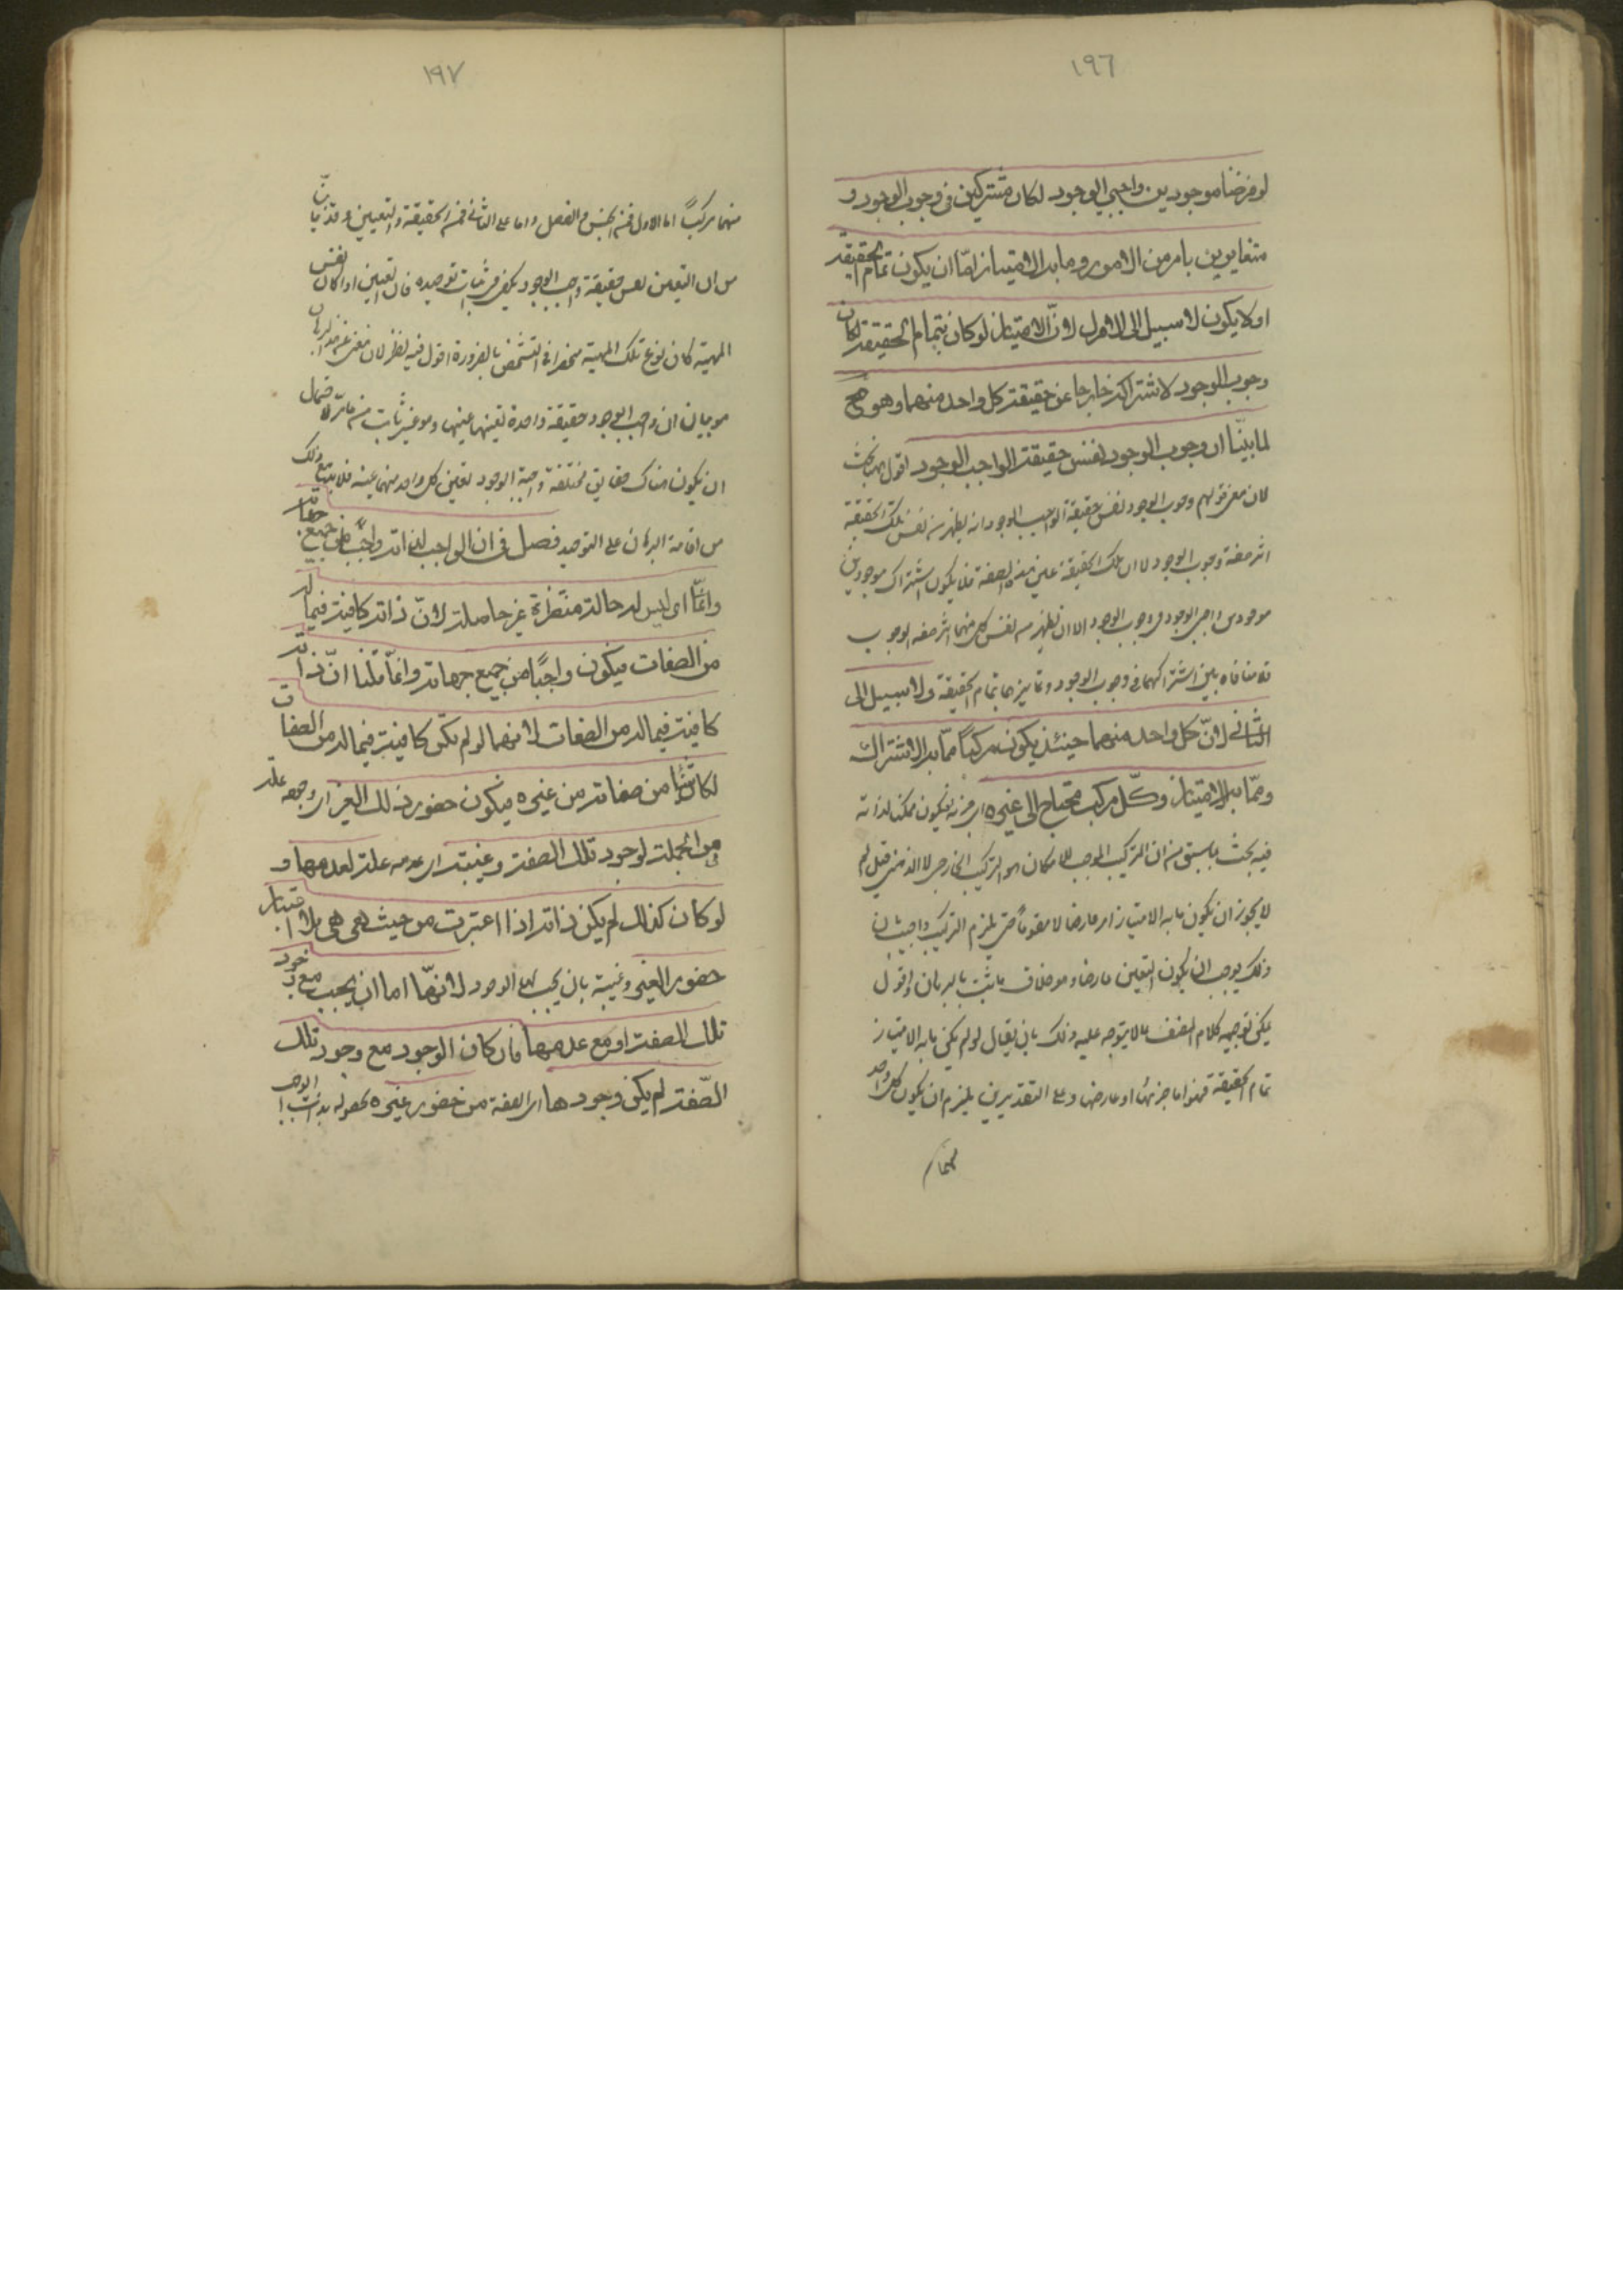 ١٩٦
لو فرضنا موجودين واجبي الوجود لكانا مشتركين في وجوب الوجود و
متغايرين بامر من الامور وما به الامتياز امّا ان يكون تمام الحقيقة
او لا يكون لا سبيل الى الاول لانّ الامتياز لو كان بتمام الحقيقة لكان
وجوب الوجود لاشتراكه خارجا عن حقيقة كل واحد منهما وهو مح
لما بيّنّا ان وجوب الوجود نفس حقيقة الواجب الوجود اقول بحث
لان معنى قولهم وجوب الوجود نفس حقيقة الواجب الوجود انه يظهر من نفس تلك الحقيقة
اثر صفة وجوب الوجود لا ان تلك الحقيقة عين هذه الصفة فلا يكون اشتراك موجودين
واجبي الوجود في وجوب الوجود الا ان يظهر من نفس كل منهما اثر صفة الوجوب
فلا منافاة بين اشتراكهما في وجوب الوجود وتمايزهما بتمام الحقيقة ولا سبيل الى
الثاني لانّ كل واحد منهما حينئذ يكون مركباً ممّا به الاشتراك
وممّا به الامتياز وكلّ مركب محتاج الى غيره اي جزئه فيكون ممكنا لذاته
فيه بحث لما سبق من ان التركيب الموجب للامكان هو التركيب الخارجي لا الذهني قيل لم
لا يجوز ان يكون ما به الامتياز امرا عارضا لا مقوماً حتى يلزم التركيب واجيب بان
ذلك يوجب ان يكون التعين عارضا وهو خلاف ما ثبت بالبرهان واقول
يمكن توجيه كلام المصنف بما لا يتوجه عليه وذلك بان يقال لو لم يكن ما به الامتياز
تمام الحقيقة فهو اما جزئها او عارضها وعلى التقديرين يلزم ان يكون كل واحد
منهما
١٩٧
منهما مركباً اما الاول فمن الجنس والفصل واما على الثاني فمن الحقيقة والتعين
من ان التعين نفس حقيقة واجب الوجود يكفي في اثبات توحيده فان التعين اذا كان نفس
المهية كان نوع تلك المهية منحصرا في الشخص بالضرورة اقول فيه نظر لان
هو بيان ان واجب الوجود حقيقة واحدة تعينها عينها وهو غير ثابت لاحتمال
ان يكون هناك حقايق مختلفة واجبة الوجود تعين كل واحد منها عينه فلا بد مع ذلك
من اقامة البرهان على التوحيد فصل في ان الواجب لذاته واجب من جميع جهاته
اي ليس له حالة منتظرة غير حاصلة لانّ ذاته كافية فيما له
من الصفات فيكون واجبًا من جميع جهاته وانما قلنا انّ ذاته
كافية فيما له من الصفات لانها لو لم تكن كافية فيما له من الصفات
لكان شئ من صفاته من غيره فيكون حضور ذلك الغير اي وجوده علة
في الجملة لوجود تلك الصفة وغيبته اي عدمه علة لعدمها و
لو كان كذلك لم يكن ذاته اذا اعتبرت من حيث هي هي بلا اعتبار
حضور الغير وغيبته بان يجب لها الوجود لانّها اما ان يجب مع وجود
تلك الصفة او مع عدمها فان كان الوجود مع وجود تلك
الصّفة لم يكن وجودها اي الصفة من حضور غيره لحصوله بذات الواجب